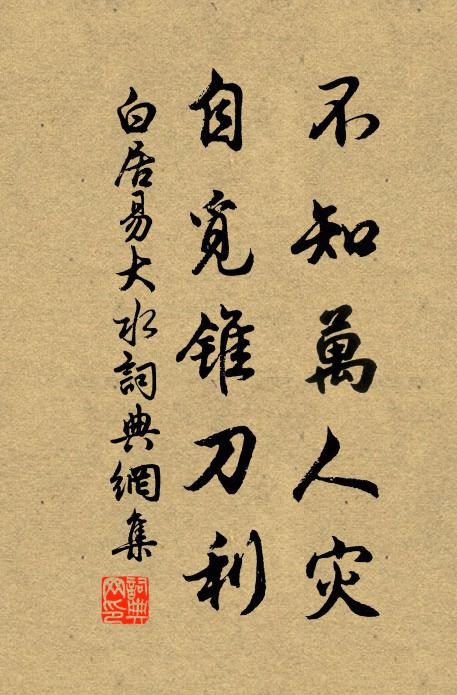 不知萬人灾
自覓錐刀利
白居易大水詞典網集
詞典
网印